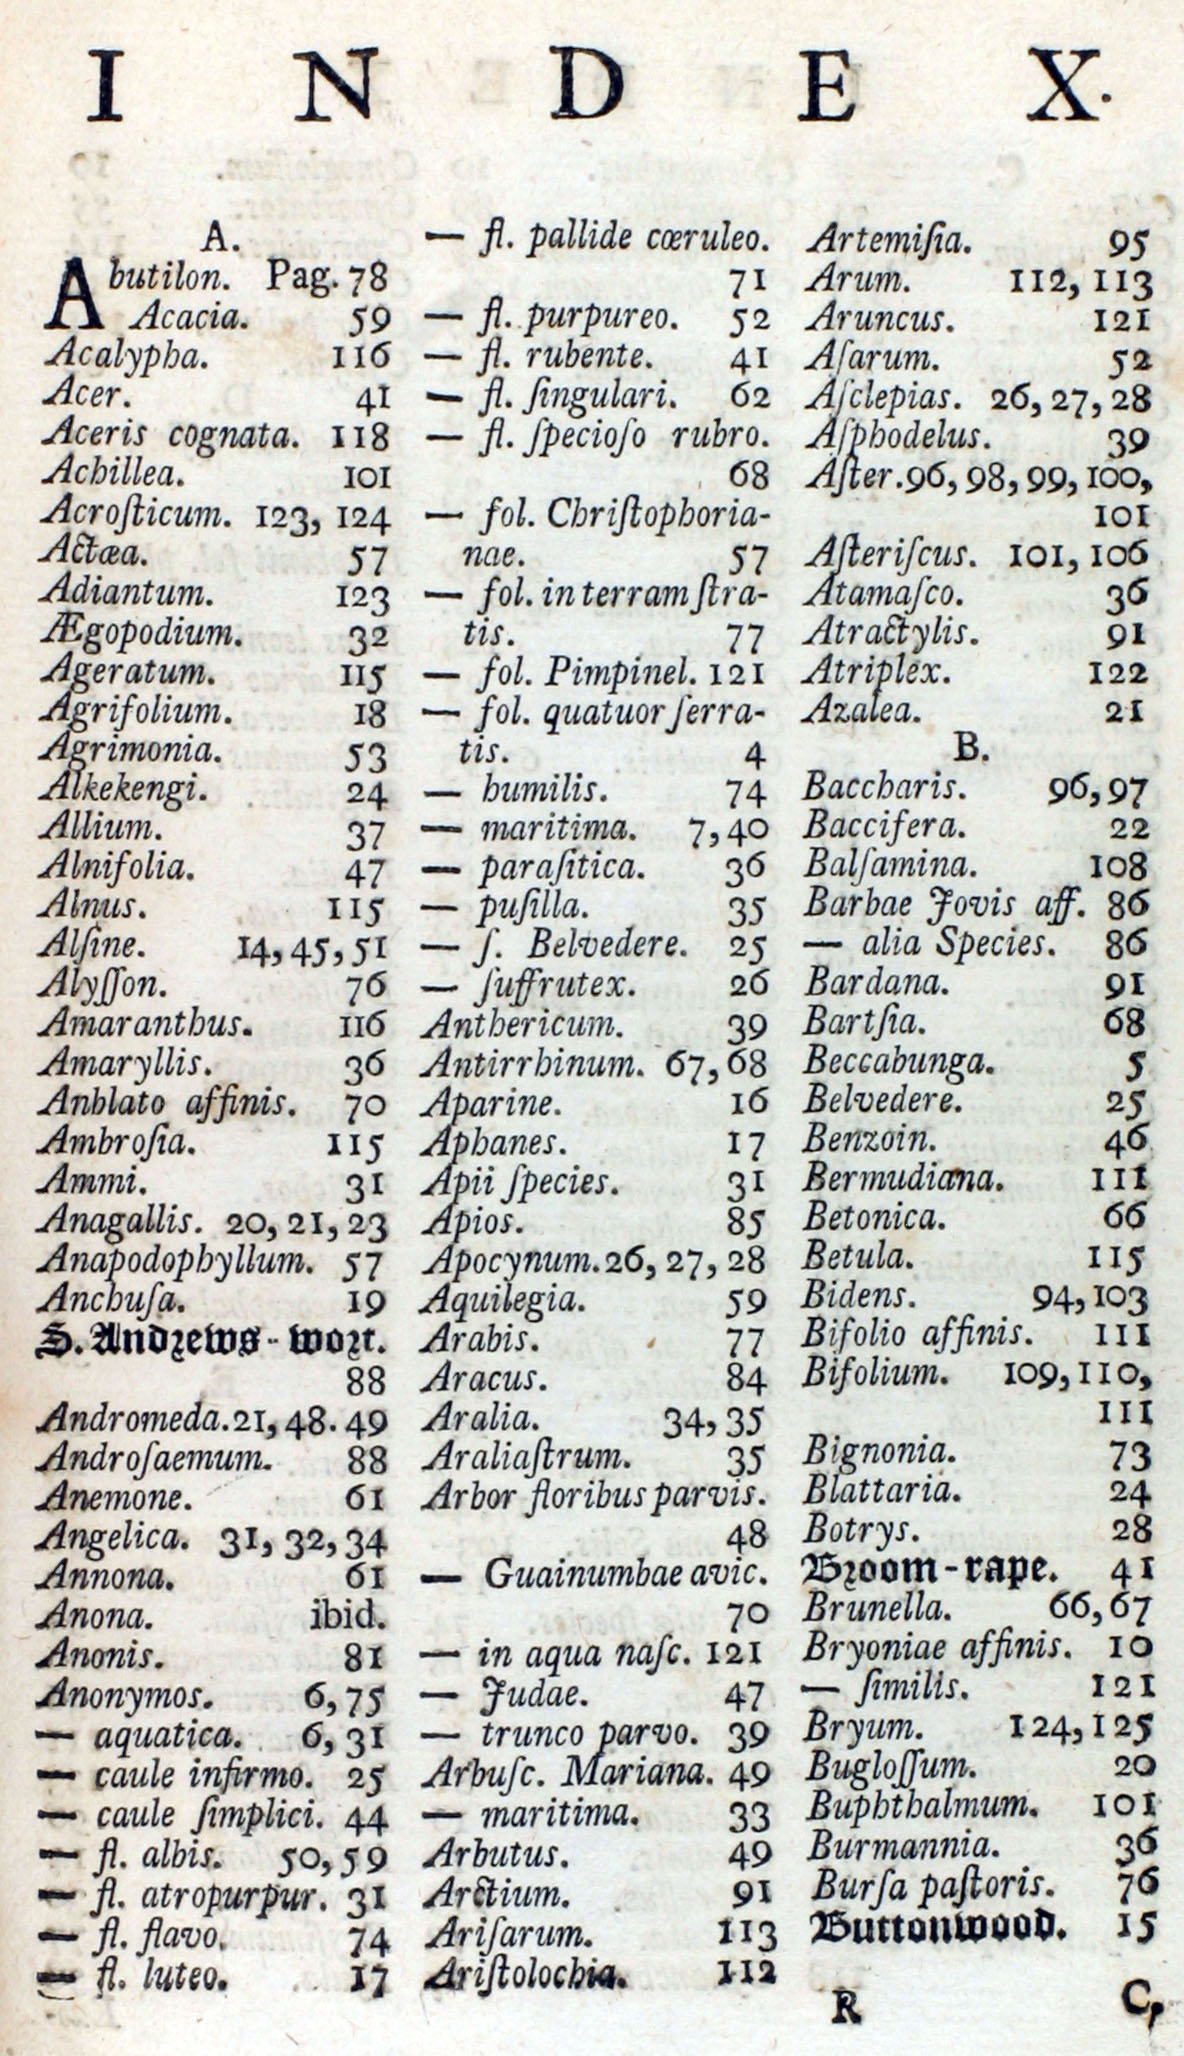 I N D E X.
A.
Abutilon. Pag. 78
Acacia. 59
Acalypha. 116
Acer. 41
Aceris cognata. 118
Achillea. 101
Acroſticum. 123, 124
Actæa. 57
Adiantum. 123
Ægopodium. 32
Ageratum. 115
Agrifolium. 18
Agrimonia. 53
Alkekengi. 24
Allium. 37
Alnifolia. 47
Alnus. 115
Alſine. 14, 45, 51
Alyſſon. 76
Amaranthus. 116
Amaryllis. 36
Anblato affinis. 70
Ambroſia. 115
Ammi. 31
Anagallis. 20, 21, 23
Anapodophyllum. 57
Anchuſa. 19
S. Andrews-wort.
88
Andromeda. 21, 48. 49
Androſaemum. 88
Anemone. 61
Angelica. 31, 32, 34
Annona. 61
Anona. ibid.
Anonis. 81
Anonymos. 6, 75
— aquatica. 6, 31
— caule infirmo. 25
— caule ſimplici. 44
— fl. albis. 50, 59
— fl. atropurpur. 31
— fl. flavo. 74
— fl. luteo. 17
— fl. pallide cœruleo.
71
— fl. purpureo. 52
— fl. rubente. 41
— fl. ſingulari. 62
— fl. ſpecioſo rubro.
68
— fol. Chriſtophoria-
nae. 57
— fol. in terram ſtra-
tis. 77
— fol. Pimpinel. 121
— fol. quatuor ſerra-
tis. 4
— humilis. 74
— maritima. 7, 40
— paraſitica. 36
— puſilla. 35
— ſ. Belvedere. 25
— ſuffrutex. 26
Anthericum. 39
Antirrhinum. 67, 68
Aparine. 16
Aphanes. 17
Apii ſpecies. 31
Apios. 85
Apocynum. 26, 27, 28
Aquilegia. 59
Arabis. 77
Aracus. 84
Aralia. 34, 35
Araliaſtrum. 35
Arbor floribus parvis.
48
— Guainumbae avic.
70
— in aqua naſc. 121
— Judae. 47
— trunco parvo. 39
Arbuſc. Mariana. 49
— maritima. 33
Arbutus. 49
Arctium. 91
Ariſarum. 113
Ariſtolochia. 112
Artemiſia. 95
Arum. 112, 113
Aruncus. 121
Aſarum. 52
Aſclepias. 26, 27, 28
Aſphodelus. 39
Aſter. 96, 98, 99, 100,
101
Aſteriſcus. 101, 106
Atamaſco. 36
Atractylis. 91
Atriplex. 122
Azalea. 21
B.
Baccharis. 96, 97
Baccifera. 22
Balſamina. 108
Barbae Jovis aff. 86
— alia Species. 86
Bardana. 91
Bartſia. 68
Beccabunga. 5
Belvedere. 25
Benzoin. 46
Bermudiana. 111
Betonica. 66
Betula. 115
Bidens. 94, 103
Bifolio affinis. 111
Bifolium. 109, 110,
111
Bignonia. 73
Blattaria. 24
Botrys. 28
Broom-rape. 41
Brunella. 66, 67
Bryoniae affinis. 10
— ſimilis. 121
Bryum. 124, 125
Bugloſſum. 20
Buphthalmum. 101
Burmannia. 36
Burſa paſtoris. 76
Buttonwood. 15
R C,